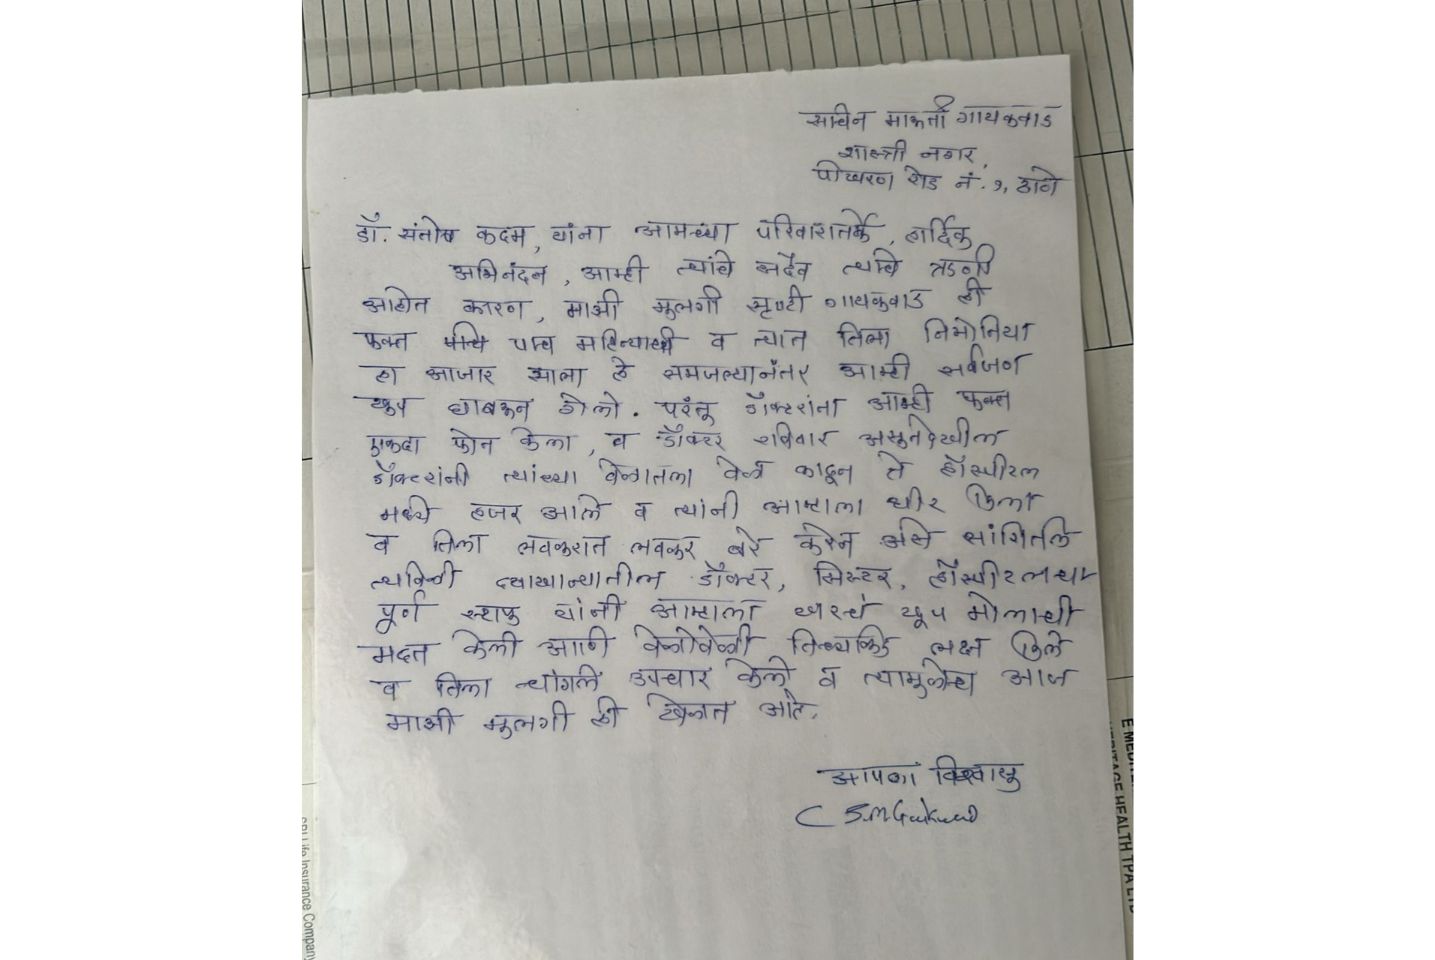 सचिन मारुती गायकवाड
शास्त्री नगर,
पोखरण रोड नं. १, ठाणे
डॉ. संतोष कदम, यांना आमच्या परिवारातर्फे, हार्दिक
अभिनंदन, आम्ही त्यांचे सदैव त्यांचे ऋणी
आहोत कारण, माझी मुलगी सृष्टी गायकवाड ही
फक्त पाच महिन्याची व त्यात तिला निमोनिया
हा आजार झाला हे समजल्यानंतर आम्ही सर्वजण
खुप घाबरून गेलो. परंतू डॉक्टरांना आम्ही फक्त
एकदा फोन केला, व डॉक्टर रविवार असूनदेखील
डॉक्टरांनी त्यांच्या वेळातला वेळ काढून ते हॉस्पीटल
मध्ये हजर आले व त्यांनी आम्हाला धीर दिला
व तिला लवकरात लवकर बरे करेन असे सांगितले
दवाखान्यातील डॉक्टर, सिस्टर, हॉस्पीटलचा
पूर्ण स्टाफ यांनी आम्हाला खरचं खूप मोलाची
मदत केली आणि वेळोवेळी तिच्याकडे लक्ष दिले
व तिला चांगले उपचार केले व त्यामुळेच आज
माझी मुलगी ही खेळत आहे.
आपला विश्वासू
S.M Gaikwad
E MEDITE
HERITAGE HEALTH TPA LTD
SBI Life Insurance Company